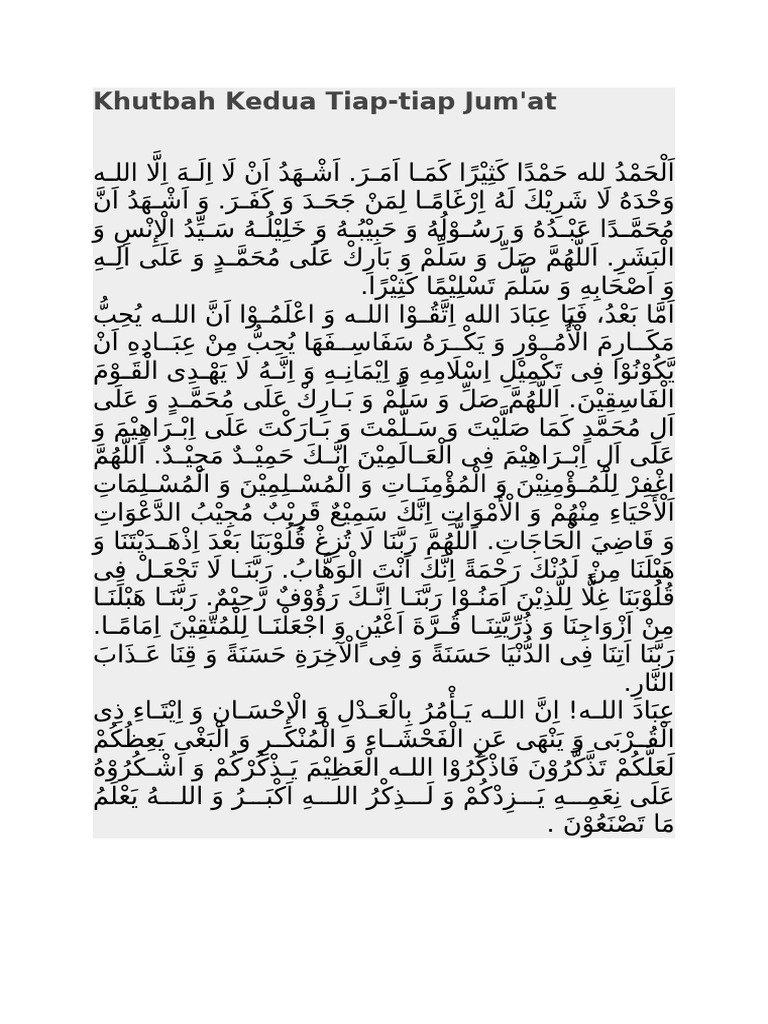 Khutbah Kedua Tiap-tiap Jum'at
اَلْحَمْدُ لله حَمْدًا كَثِيْرًا كَمَـا اَمَـرَ. اَشْـهَدُ اَنْ لَا اِلَـهَ اِلَّا اللـه
وَحْدَهُ لَا شَرِيْكَ لَهُ اِرْغَامًـا لِمَنْ جَحَـدَ وَ كَفَـرَ. وَ اَشْـهَدُ اَنَّ
مُحَمَّـدًا عَبْـدُهُ وَ رَسُـوْلُهُ وَ حَبِيْبُـهُ وَ خَلِيْلُـهُ سَـيِّدُ الْإِنْسِ وَ
الْبَشَرِ. اَللَّهُمَّ صَلِّ وَ سَلِّمْ وَ بَارِكْ عَلَى مُحَمَّـدٍ وَ عَلَى اَلِـهِ
وَ اَصْحَابِهِ وَ سَلَّمَ تَسْلِيْمًا كَثِيْرًا.
اَمَّا بَعْدُ، فَيَا عِبَادَ الله اِتَّقُـوْا اللـه وَ اعْلَمُـوْا اَنَّ اللـه يُحِبُّ
مَكَـارِمَ الْأُمُـوْرِ وَ يَكْـرَهُ سَفَاسِـفَهَا يُحِبُّ مِنْ عِبَـادِهِ اَنْ
يَّكُوْنُوْا فِى تَكْمِيْلِ اِسْلَامِهِ وَ اِيْمَانِـهِ وَ اِنَّـهُ لَا يَهْـدِى الْقَـوْمَ
الْفَاسِقِيْنَ. اَللَّهُمَّ صَلِّ وَ سَلِّمْ وَ بَـارِكْ عَلَى مُحَمَّـدٍ وَ عَلَى
اَلِ مُحَمَّدٍ كَمَا صَلَّيْتَ وَ سَـلَّمْتَ وَ بَـارَكْتَ عَلَى اِبْـرَاهِيْمَ وَ
عَلَى اَلِ اِبْـرَاهِيْمَ فِى الْعَـالَمِيْنَ اِنَّـكَ حَمِيْـدٌ مَجِيْـدٌ. اَللَّهُمَّ
اغْفِرْ لِلْمُـؤْمِنِيْنَ وَ الْمُؤْمِنَـاتِ وَ الْمُسْـلِمِيْنَ وَ الْمُسْـلِمَاتِ
اَلْأَحْيَاءِ مِنْهُمْ وَ الْأَمْوَاتِ اِنَّكَ سَمِيْعٌ قَرِيْبٌ مُجِيْبُ الدَّعْوَاتِ
وَ قَاضِيَ الْحَاجَاتِ. اَللَّهُمَّ رَبَّنَا لَا تُزِغْ قُلُوْبَنَا بَعْدَ اِذْهَـدَيْتَنَا وَ
هَبْلَنَا مِنْ لَدُنْكَ رَحْمَةً اِنَّكَ اَنْتَ الْوَهَّابُ. رَبَّنَـا لَا تَجْعَـلْ فِى
قُلُوْبَنَا غِلًّا لِلَّذِيْنَ اَمَنُـوْا رَبَّنَـا اِنَّـكَ رَؤُوْفٌ رَّحِيْمٌ. رَبَّنَـا هَبْلَنَـا
مِنْ اَزْوَاجِنَا وَ ذُرِّيَّتِنَـا قُـرَّةَ اَعْيُنٍ وَ اجْعَلْنَـا لِلْمُتَّقِيْنَ اِمَامًـا.
رَبَّنَا اَتِنَا فِى الدُّنْيَا حَسَنَةً وَ فِى الْآخِرَةِ حَسَنَةً وَ قِنَا عَـذَابَ
النَّارِ.
عِبَادَ اللـه! اِنَّ اللـه يَـأْمُرُ بِالْعَـدْلِ وَ الْإِحْسَـانِ وَ اِيْتَـاءِ ذِى
الْقُـرْبَى وَ يَنْهَى عَنِ الْفَحْشَـاءِ وَ الْمُنْكَـرِ وَ الْبَغْيِ يَعِظُكُمْ
لَعَلَّكُمْ تَذَّكَّرُوْنَ فَاذْكُرُوْا اللـه الْعَظِيْمَ يَـذْكُرْكُمْ وَ اشْـكُرُوْهُ
عَلَى نِعَمِـهِ يَـزِدْكُمْ وَ لَـذِكْرُ اللـهِ اَكْبَـرُ وَ اللـهُ يَعْلَمُ
مَا تَصْنَعُوْنَ .